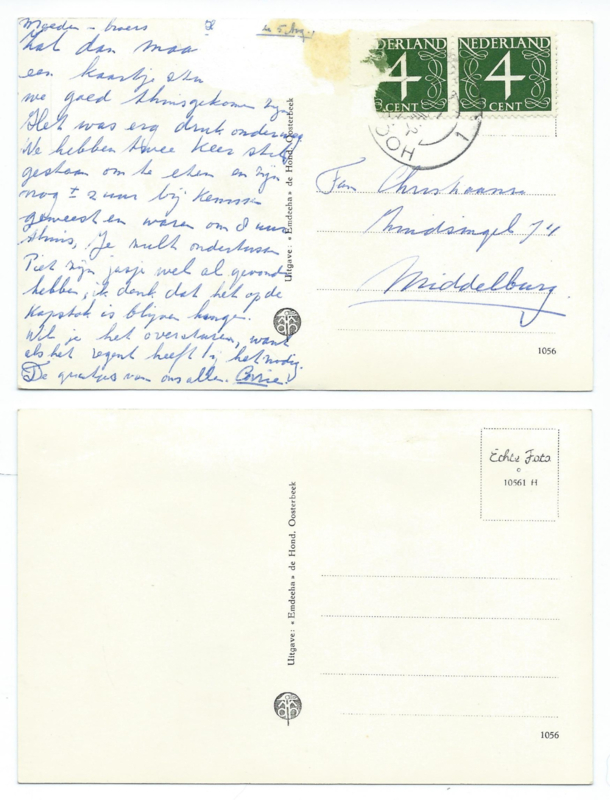 Moeder - broers
Zal dan maar
een kaartje
we goed thuisgekomen zijn
Het was erg druk onderweg
We hebben twee keer stil
gestaan om te eten en zijn
nog ± 2 uur bij kennissen
geweest en waren om 8 uur
thuis. Je zult ondertussen
Piet zijn jasje wel al gevonden
hebben, ik denk dat het op de
Kapstok is blijven hangen.
Wil je het oversturen, want
als het regent heeft hij het nodig.
De groetjes van ons allen. Corrie.
NEDERLAND
4
CENT
NEDERLAND
4
CENT
HOO
Fam Christiaanse
singel 74
Middelburg.
Uitgave: « Emdeeha » de Hond, Oosterbeek
1056
Echte Foto
10561 H
Uitgave: « Emdeeha » de Hond, Oosterbeek
1056